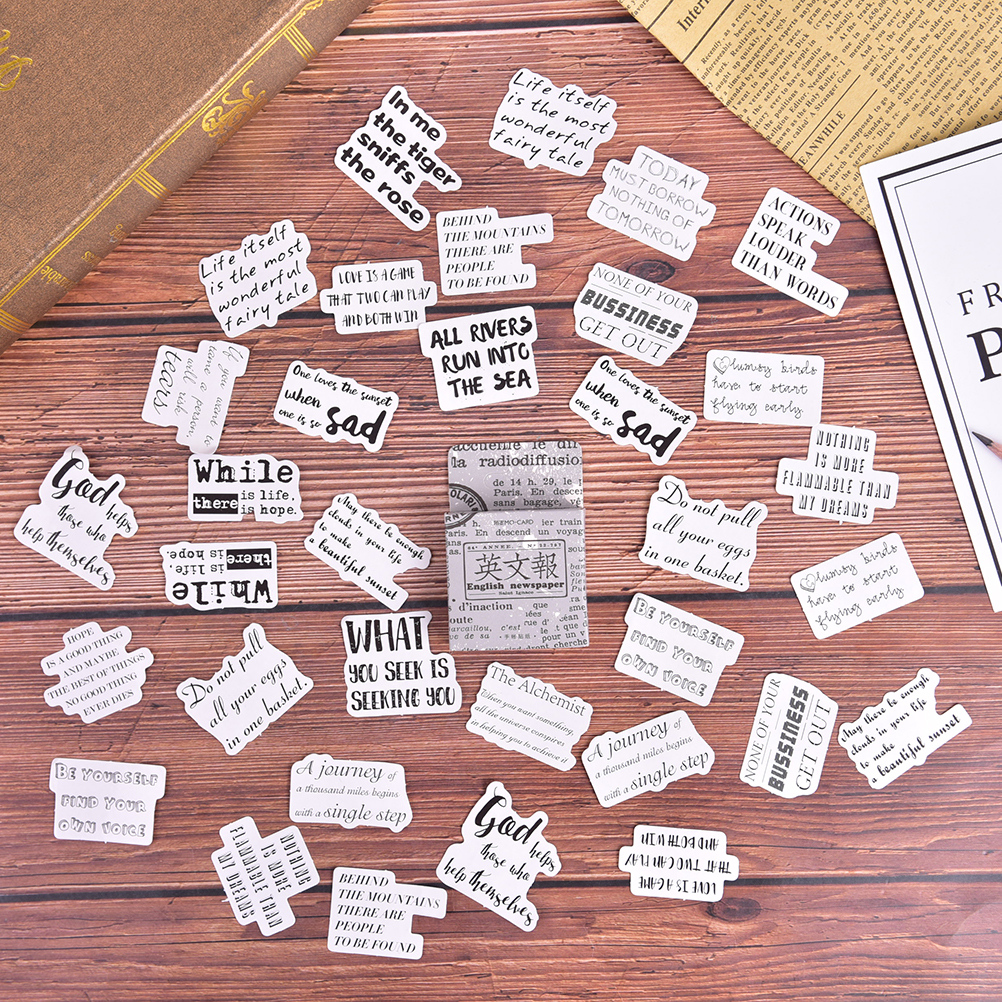 In me
the tiger
sniffs
the rose
Life itself
is the most
wonderful
fairy tale
TODAY
MUST BORROW
NOTHING OF
TOMORROW
ACTIONS
SPEAK
LOUDER
THAN WORDS
BEHIND
THE MOUNTAINS
THERE ARE
PEOPLE
TO BE FOUND
Life itself
is the most
wonderful
fairy tale
LOVE IS A GAME
THAT TWO CAN PLAY
AND BOTH WIN
NONE OF YOUR
BUSSINESS
GET OUT
ALL RIVERS
RUN INTO
THE SEA
If you want to
tame a person,
will risk
tears
One loves the sunset
when
one is so sad
One loves the sunset
when
one is so sad
Clumsy birds
have to start
flying early.
NOTHING
IS MORE
FLAMMABLE THAN
MY DREAMS
God helps
those who
help themselves
While
there is life,
there is hope.
May there be enough
clouds in your life
to make
a beautiful sunset
accueille le
la radiodiffusion
de 14 h. 29, le
Paris. En
sans bagage,
BIZMO-CARD
Paris. En descend un voyag
英文報
English newspaper
Saint Ignace
d'inaction
Do not pull
all your eggs
in one basket.
While
there is life,
there is hope
Clumsy birds
have to start
flying early.
HOPE
IS A GOOD THING
AND MAYBE
THE BEST OF THINGS
NO GOOD THING
EVER DIES
Do not pull
all your eggs
in one basket.
WHAT
YOU SEEK IS
SEEKING YOU
BE YOURSELF
FIND YOUR
OWN VOICE
The Alchemist
When you want something,
all the universe conspires
in helping you to achieve it
A journey of
a thousand miles begins
with a single step
NONE OF YOUR
BUSSINESS
GET OUT
May there be enough
clouds in your life
to make
a beautiful sunset
BE YOURSELF
FIND YOUR
OWN VOICE
A journey of
a thousand miles begins
with a single step
NOTHING
IS MORE
FLAMMABLE THAN
MY DREAMS
BEHIND
THE MOUNTAINS
THERE ARE
PEOPLE
TO BE FOUND
God helps
those who
help themselves
LOVE IS A GAME
THAT TWO CAN PLAY
AND BOTH WIN
MEANWHILE
FR
P